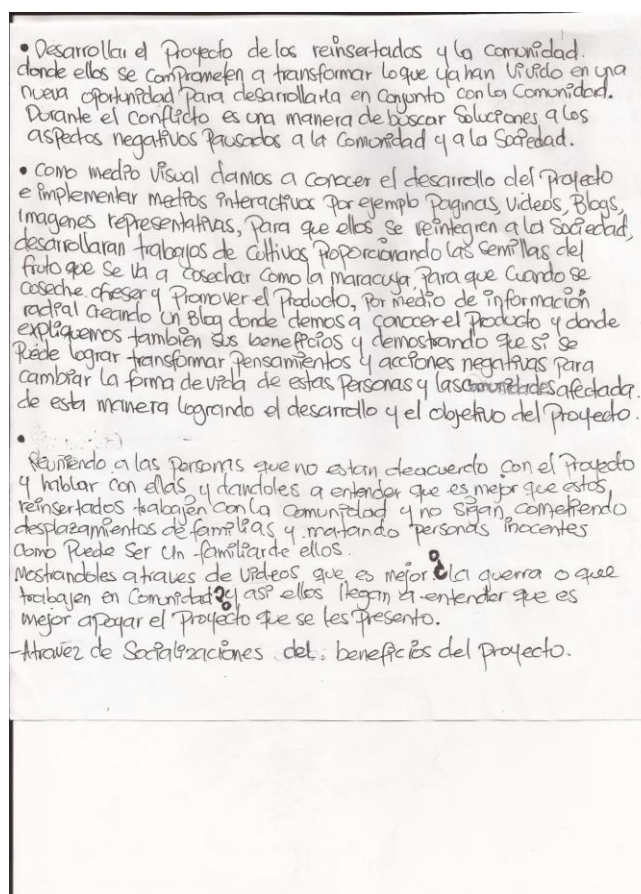 • Desarrollar el Proyecto de los reinsertados y la Comunidad.
donde ellos se comprometen a transformar lo que ya han vivido en una
nueva oportunidad para desarrollarla en conjunto con la Comunidad.
Durante el conflicto es una manera de buscar Soluciones a los
aspectos negativos Pausados a la Comunidad y a la Sociedad.
• Como medio visual damos a conocer el desarrollo del Proyecto
e implementar medios interactivos Por ejemplo Paginas, videos, Blogs,
imagenes representativas, Para que ellos se reintegren a la Sociedad,
desarrollaran trabajos de Cultivos Proporcionando las Semillas del
fruto que se va a cosechar como la maracuya, Para que Cuando se
coseche. ofreser y Promover el Producto, Por medio de información
radial Creando Un Blog donde demos a conocer el Producto y donde
expliquemos también sus beneficios y demostrando que si se
Puede lograr transformar Pensamientos y acciones negativas Para
cambiar la forma de vida de estas Personas y las comunidades afectada.
de esta manera logrando el desarrollo y el objetivo del Proyecto.
•
Reuniendo a las Personas que no estan deacuerdo con el Proyecto
y hablar con ellas, y dandoles a entender que es mejor que estos
reinsertados trabajen con la Comunidad y no sigan, cometiendo
desplazamientos de familias y matando personas inocentes
Como Puede Ser Un familiar de ellos.
Mostrandoles a traves de videos que es mejor ¿la guerra o que
trabajen en Comunidad? y asi ellos llegan a entender que es
mejor apoyar el Proyecto que se les Presento.
-Atravez de Socializaciones del: beneficios del proyecto.